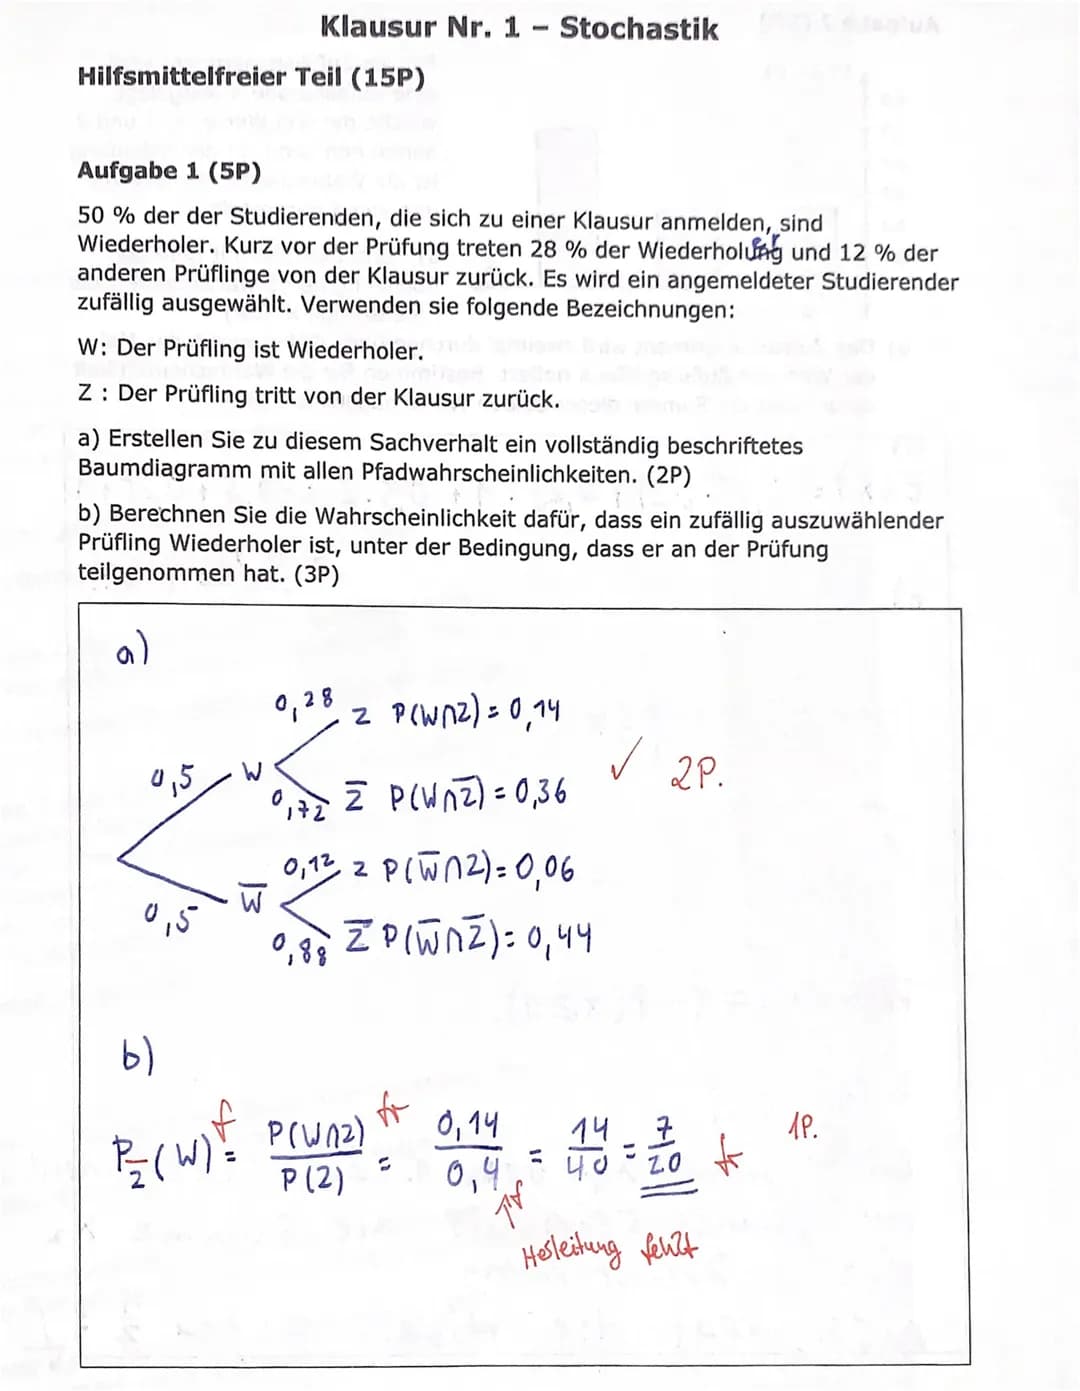 Klausur Nr. 1 – Stochastik
Hilfsmittelfreier Teil (15P)
Aufgabe 1 (5P)
50 % der der Studierenden, die sich zu einer Klausur anmelden, sind
Wiederholer. Kurz vor der Prüfung treten 28 % der Wiederholer und 12 % der
anderen Prüflinge von der Klausur zurück. Es wird ein angemeldeter Studierender
zufällig ausgewählt. Verwenden sie folgende Bezeichnungen:
W: Der Prüfling ist Wiederholer.
Z : Der Prüfling tritt von der Klausur zurück.
a) Erstellen Sie zu diesem Sachverhalt ein vollständig beschriftetes
Baumdiagramm mit allen Pfadwahrscheinlichkeiten. (2P)
b) Berechnen Sie die Wahrscheinlichkeit dafür, dass ein zufällig auszuwählender
Prüfling Wiederholer ist, unter der Bedingung, dass er an der Prüfung
teilgenommen hat. (3P)
a)
0,28 Z P(W∩Z) = 0,14
0,5 W ✓ 2P.
0,72 Z̅ P(W∩Z̅) = 0,36
0,12 Z P(W̅∩Z) = 0,06
0,5 W̅
0,88 Z̅ P(W̅∩Z̅) = 0,44
b)
P_Z̅(W) f = P(W∩Z)/P(Z) fr = 0,14/0,4 = 14/40 = 7/20 fr 1P.
↑f
Herleitung fehlt